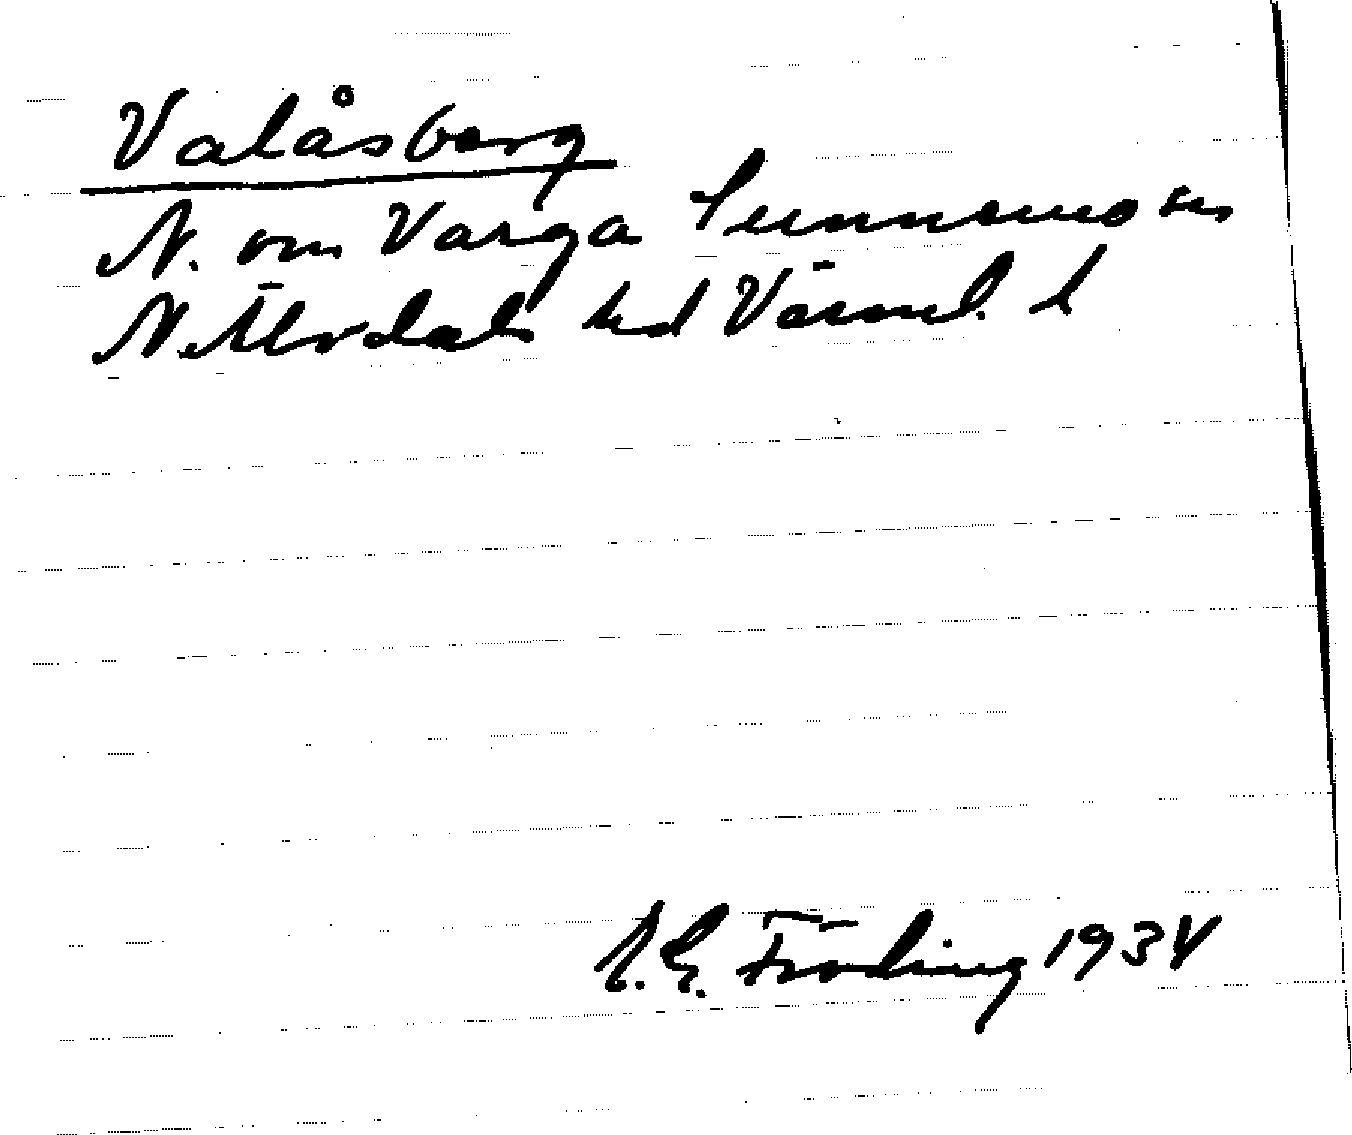 Valåsberg
N. om Varga Sunnemo sn
N. Älvdals hd Värml. l
E. Fröding 1934